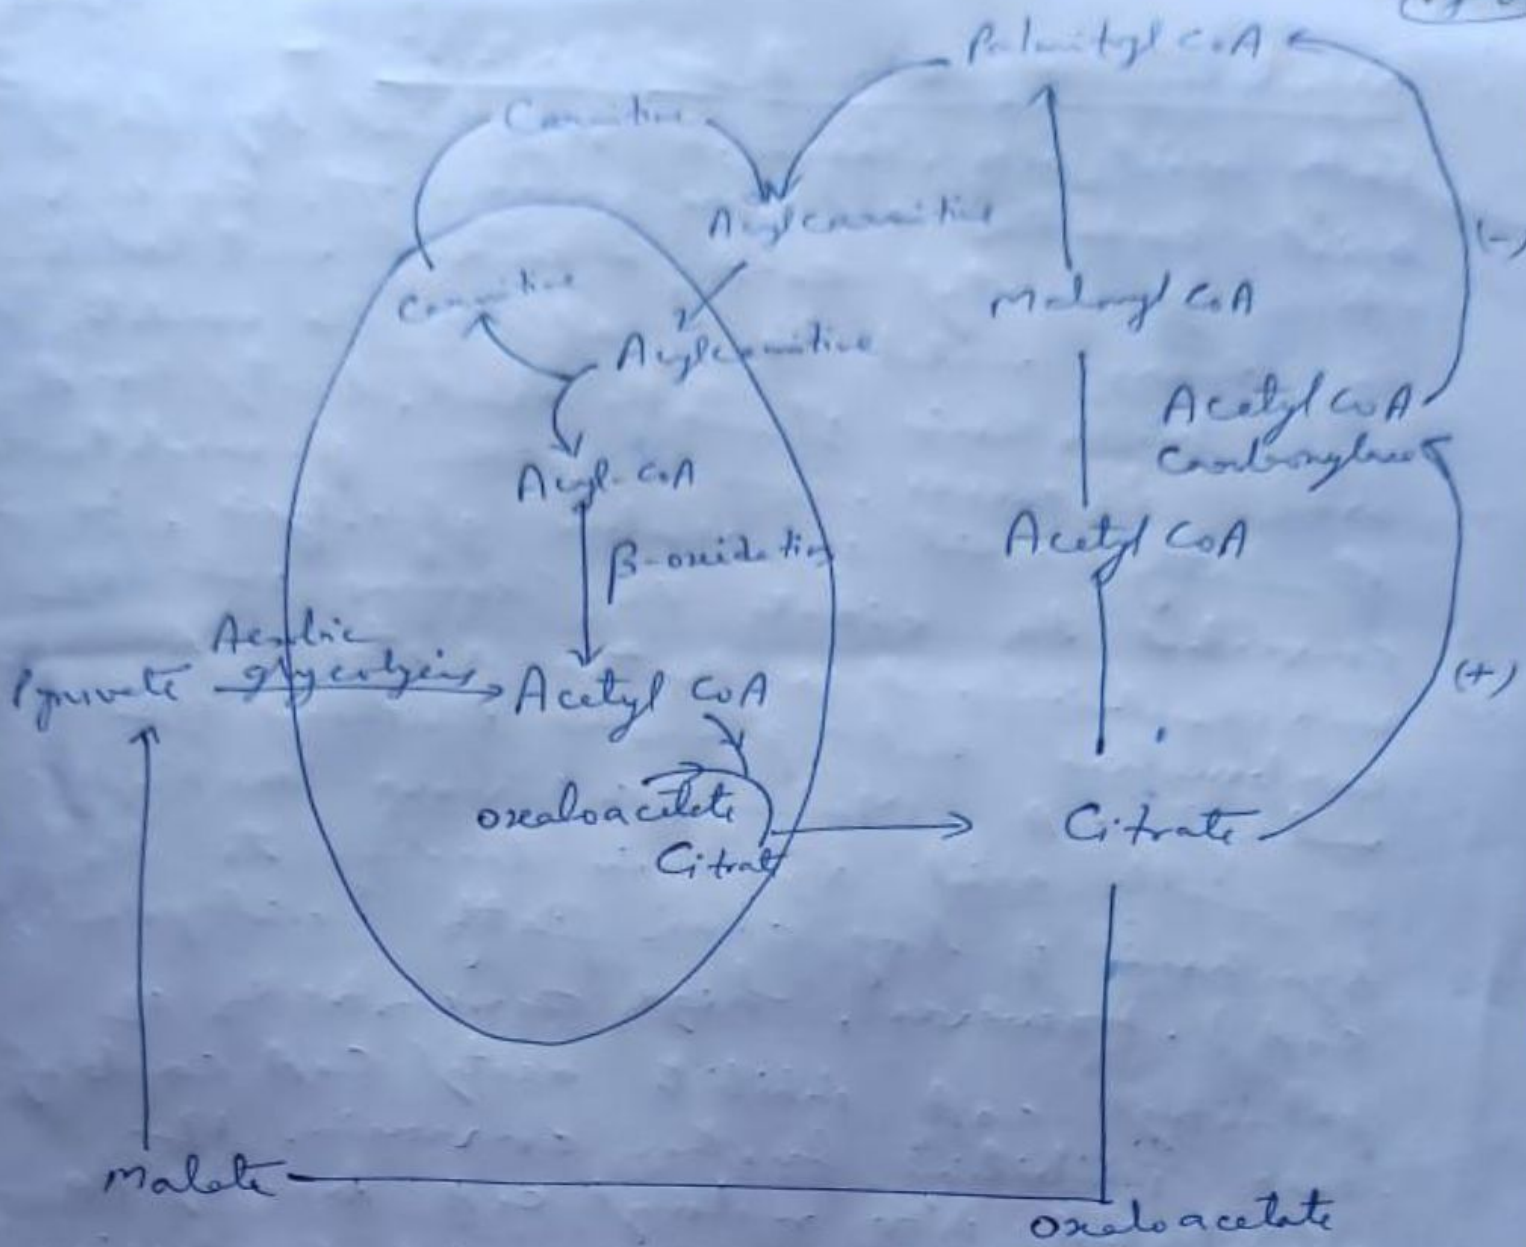 Palmityl CoA
Carnitine
Acylcarnitine
(-)
Carnitine
Malonyl CoA
Acylcarnitine
Acetyl CoA
Carboxylase
Acyl-CoA
Acetyl CoA
β-oxidation
Aerobic
glycolysis
Pyruvate
Acetyl CoA
(+)
oxaloacetate
Citrate
Citrate
Malate
oxaloacetate